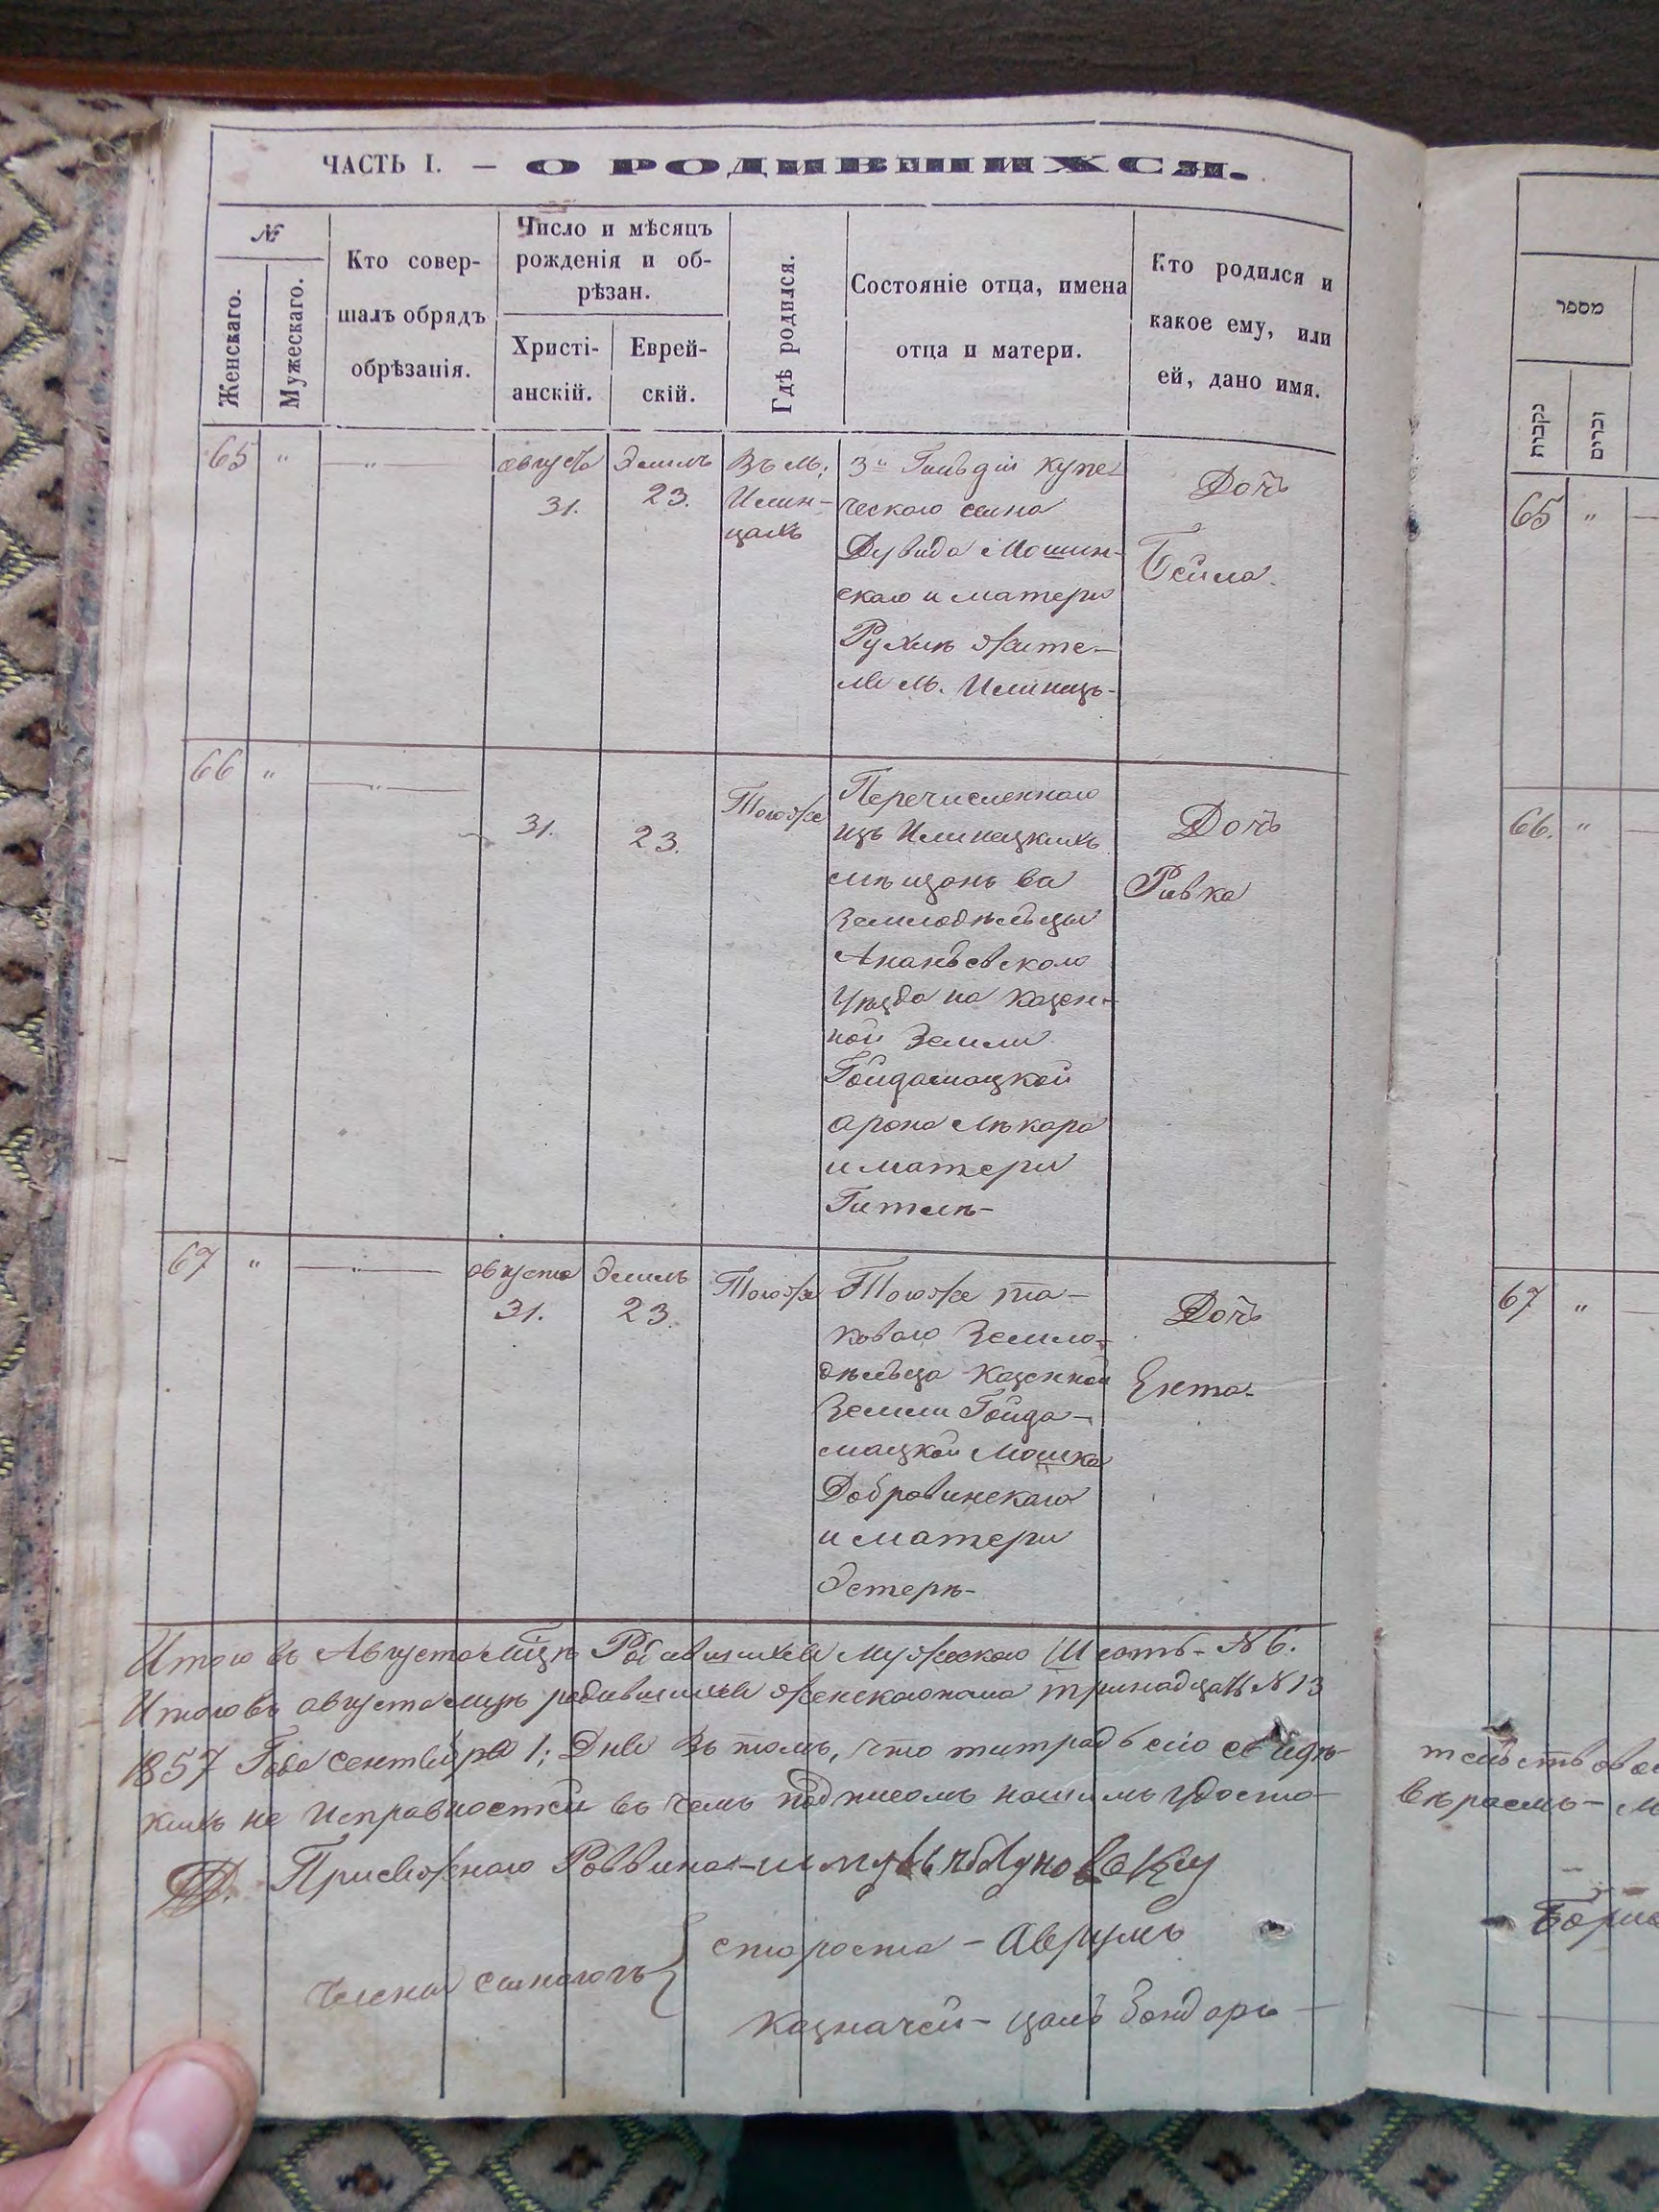 ЧАСТЬ I. — О РОДИВШИХСЯ.
№
Женскаго.
Мужескаго.
Кто совер-
шалъ обрядъ
обрѣзанія.
Число и мѣсяцъ
рожденія и об-
рѣзан.
Христі-
анскій.
Еврей-
скій.
Гдѣ родился.
Состояніе отца, имена
отца и матери.
Кто родился и
какое ему, или
ей, дано имя.
65 " — " —
августа
31.
Элилъ
23.
Въ м.
Илин-
цахъ
3й Гильдіи купе
ческаго сына
Дувида Мошин-
скаго и матери
Рухли жите-
ли м. Илинецъ-
Дочь
Бейла.
66 " — " —
31.
23.
Тогоже
Перечисленнаго
изъ Илинецкихъ
мѣщанъ ва
Земледѣльцы
Ананьевскаго
уѣзда на казен-
ной Земли
Гайдамацкой
Арона Лѣкара
и матери
Гителѣ-
Дочь
Ривка
67 " — " —
августа
31.
Элилъ
23.
Тогоже
Тогоже та-
коваго Земле-
дѣльца казенной
Земли Гайда-
мацкой Мошка
Добровинскаго
и матери
Эстерѣ-
Дочь
Ента.
Итого въ Августа мцѣ Родившихся Мужескаго Шесть- № 6.
Итого въ августа мцѣ родившихся женскаго пола тринадцать № 13
1857 Года сентября 1; Дня Въ томъ, что титрадь сію свидѣ-
кихъ не исправностей въ чемъ подписомъ нашимъ удосто-
Присяжнаго Раввина-
члена синагогъ
староста - Аврумъ
казначей - цаль Бондарь
מספר
נקבות
זכרים
65 " —
66. " —
67 " —
тельствова
вѣряемъ - м